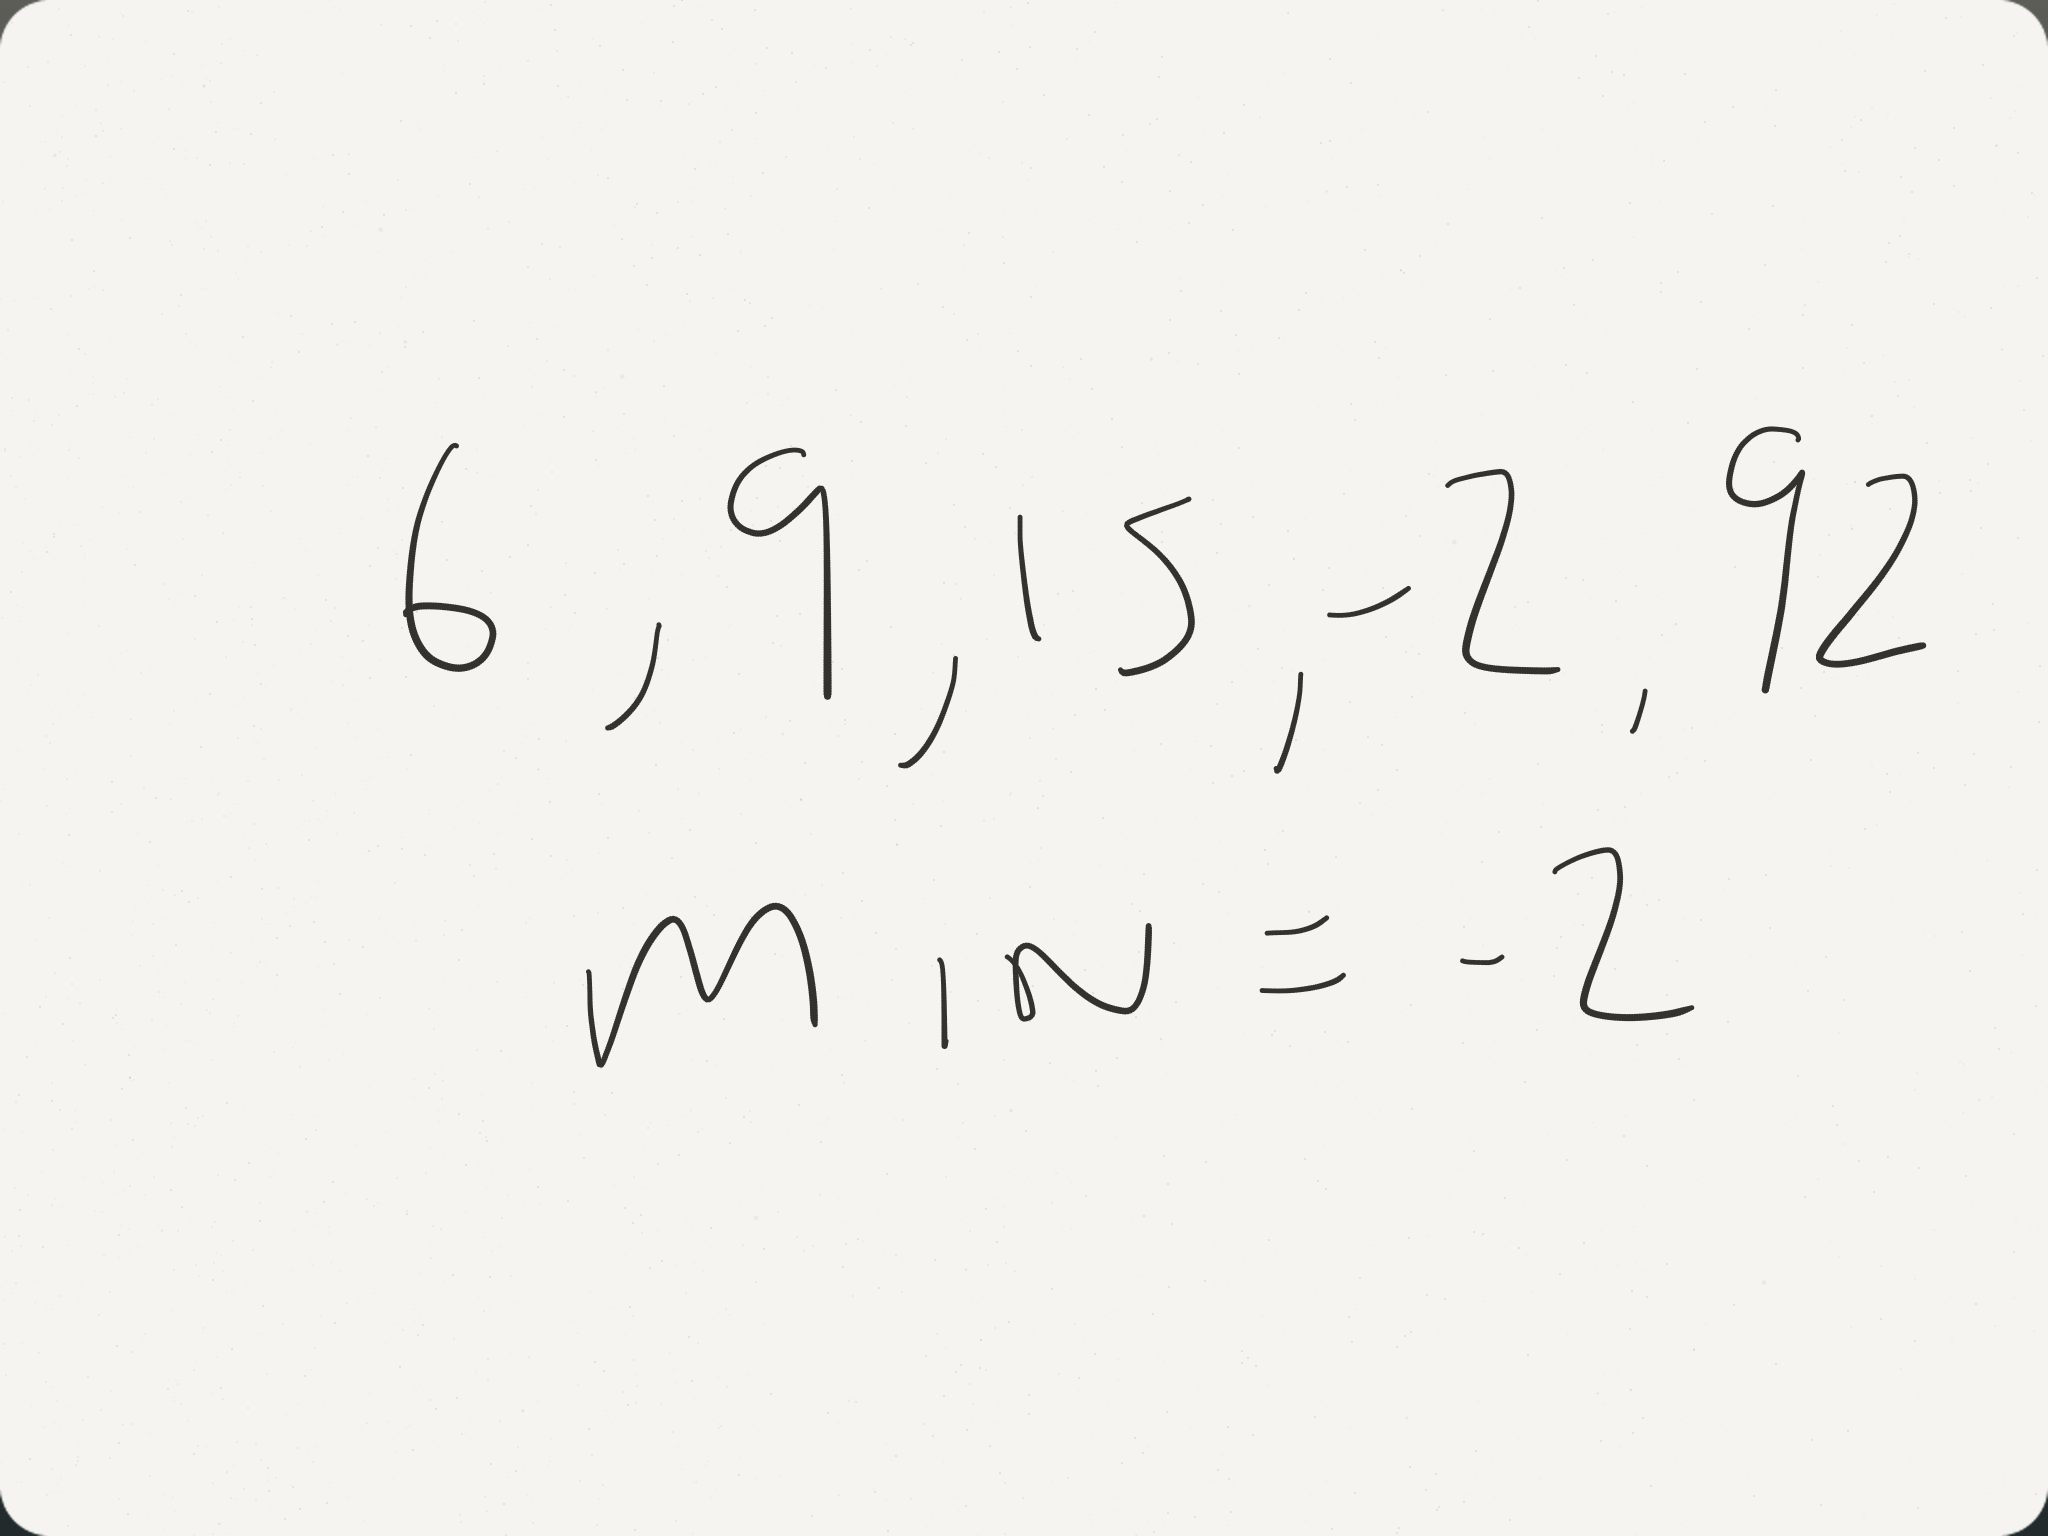 6, 9, 15, -2, 92
MIN = -2